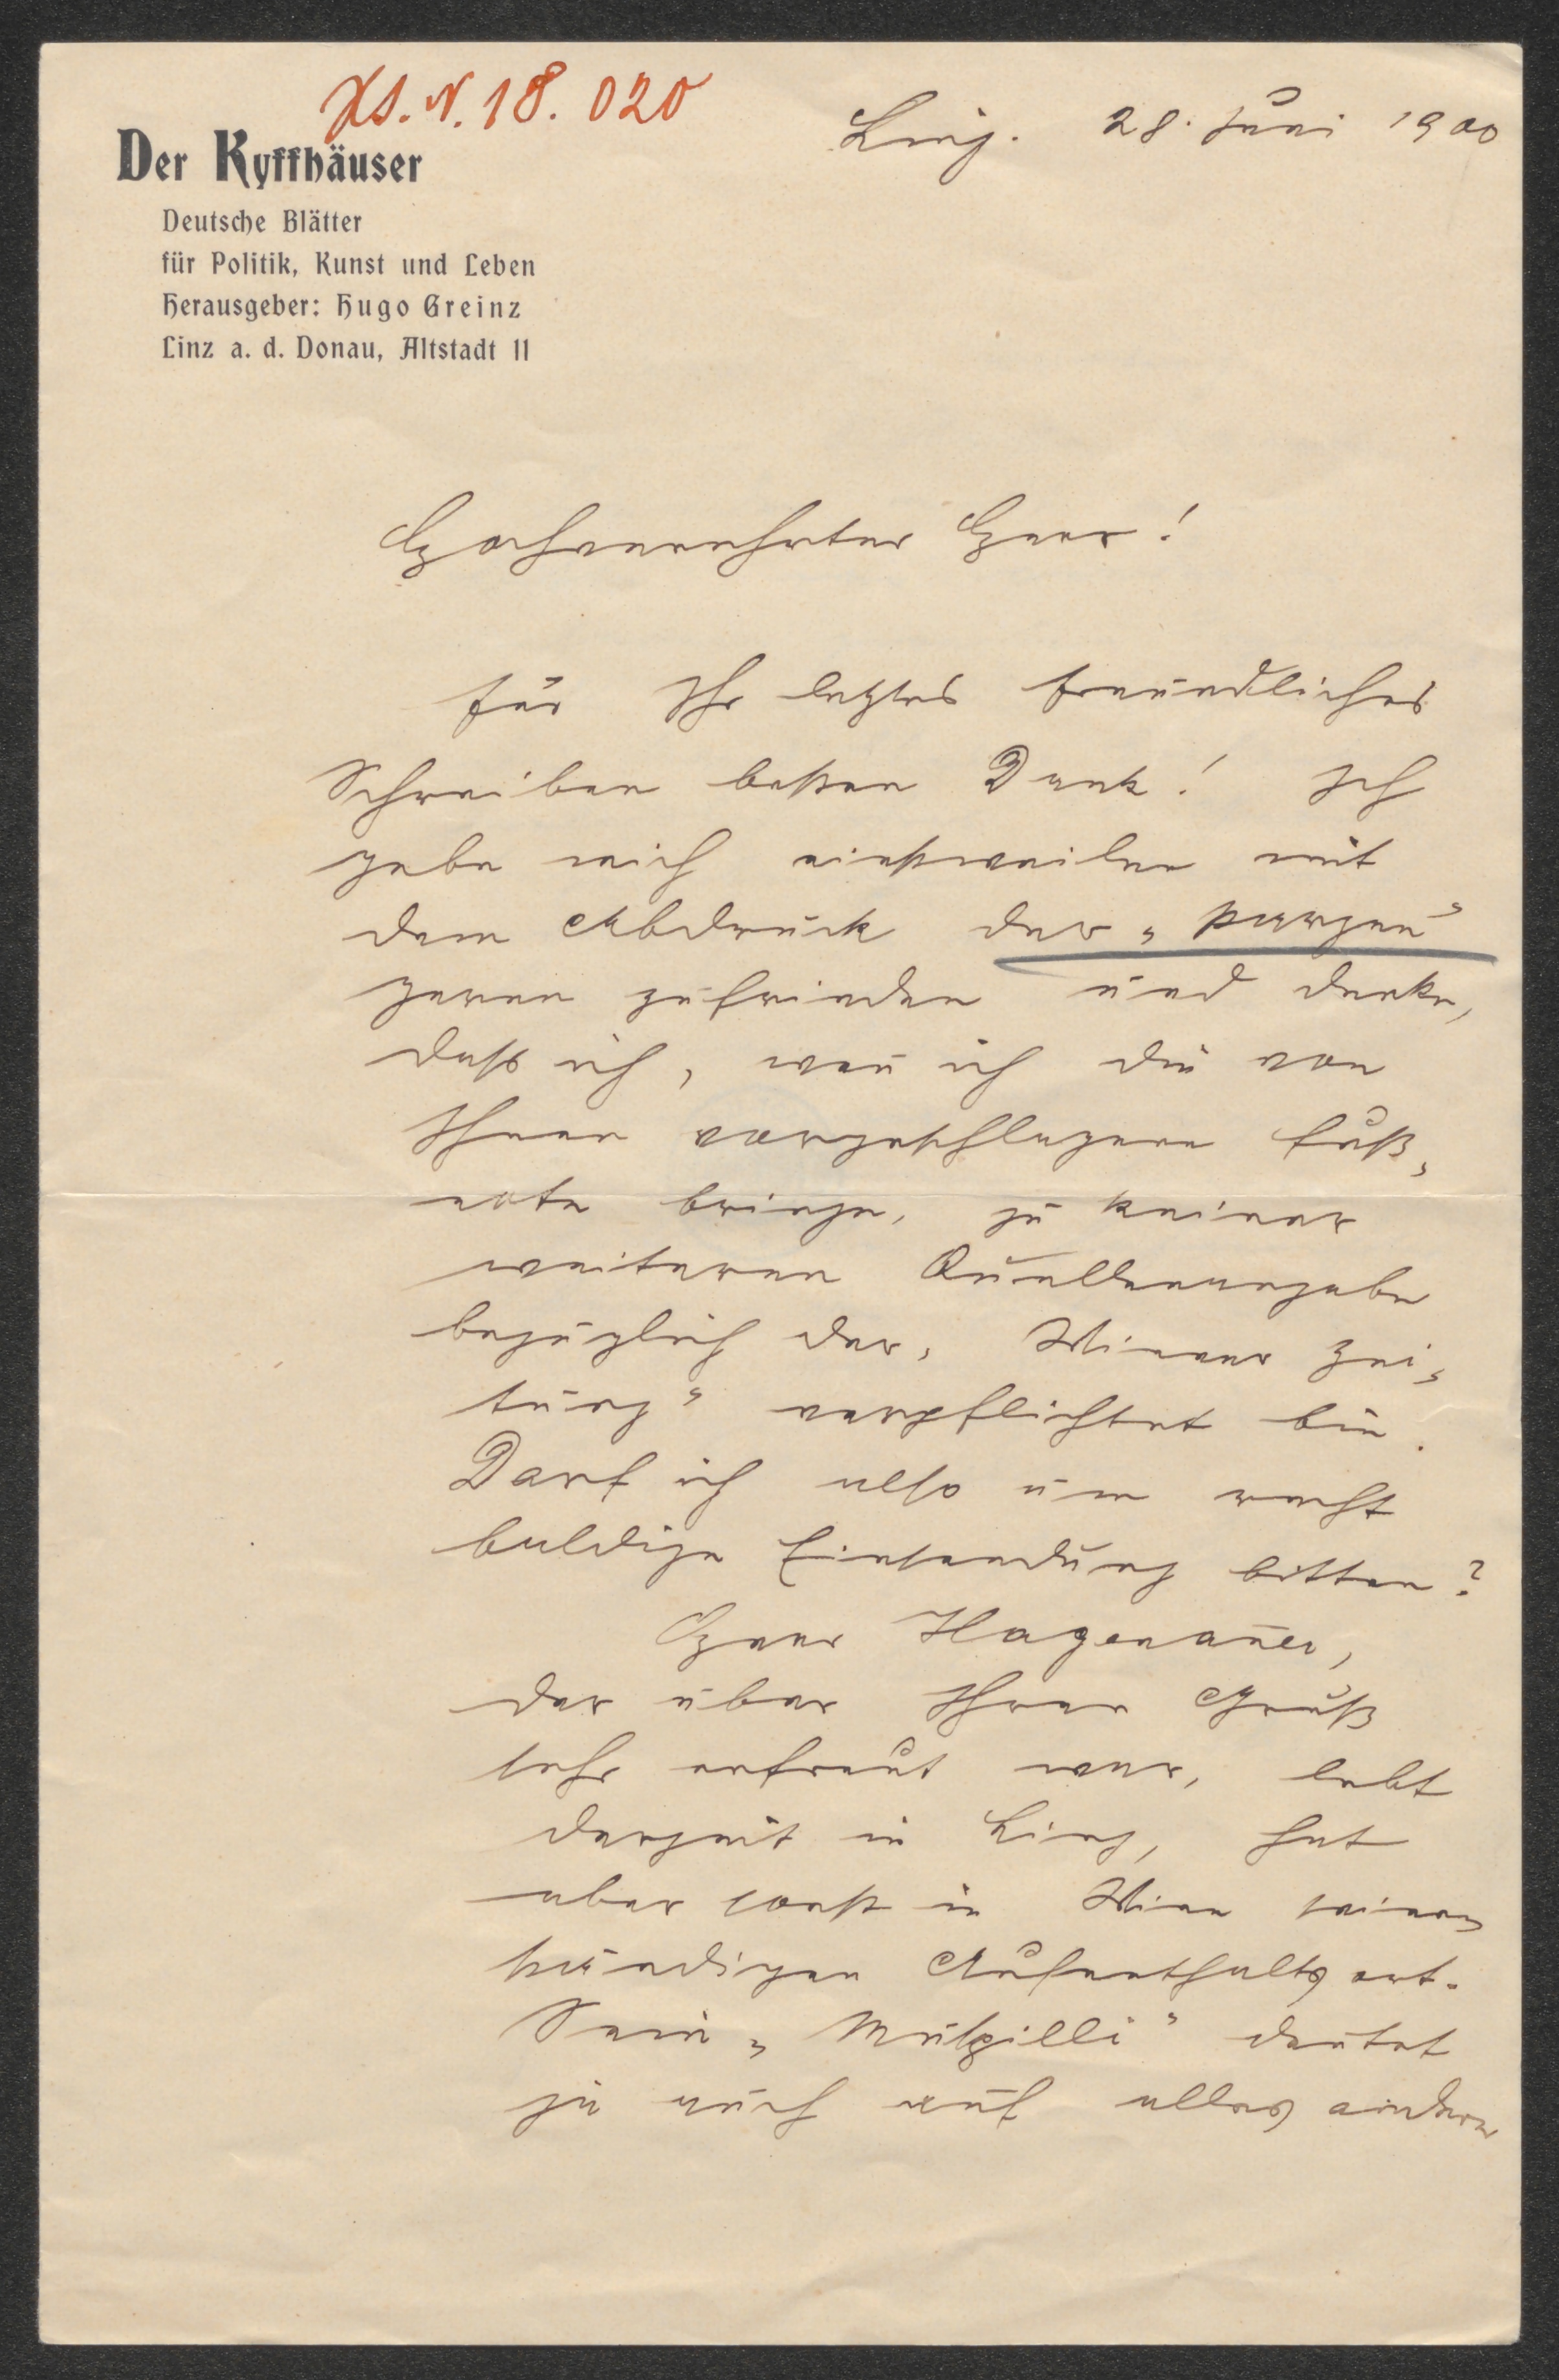 HS. N. 18. 020
Linz. 28. Juni 1900
Der Kyffhäuser
Deutsche Blätter
für Politik, Kunst und Leben
Herausgeber: Hugo Greinz
Linz a. d. Donau, Altstadt 11
Hochverehrter Herr!
Für Ihr letztes freundliches
Schreiben besten Dank! Ich
gebe mich einstweilen mit
dem Abdruck der „Parzen“
gerne zufrieden und denke,
dass ich, wen̄ ich die von
Ihnen vorgeschlagene Fuß„
note bringe, zu keiner
weiteren Quellenangabe
bezüglich der „Wiener Zei„
tung“ verpflichtet bin.
Darf ich also um recht
baldige Einsendung bitten?
Herr Hagenauer,
der über Ihren Gruß
sehr erfreut war, lebt
derzeit in Linz, hat
aber sonst in Wien seinen
ständigen Aufenthaltsort.
Sein „Muspilli“ deutet
ja auch auf alles andere